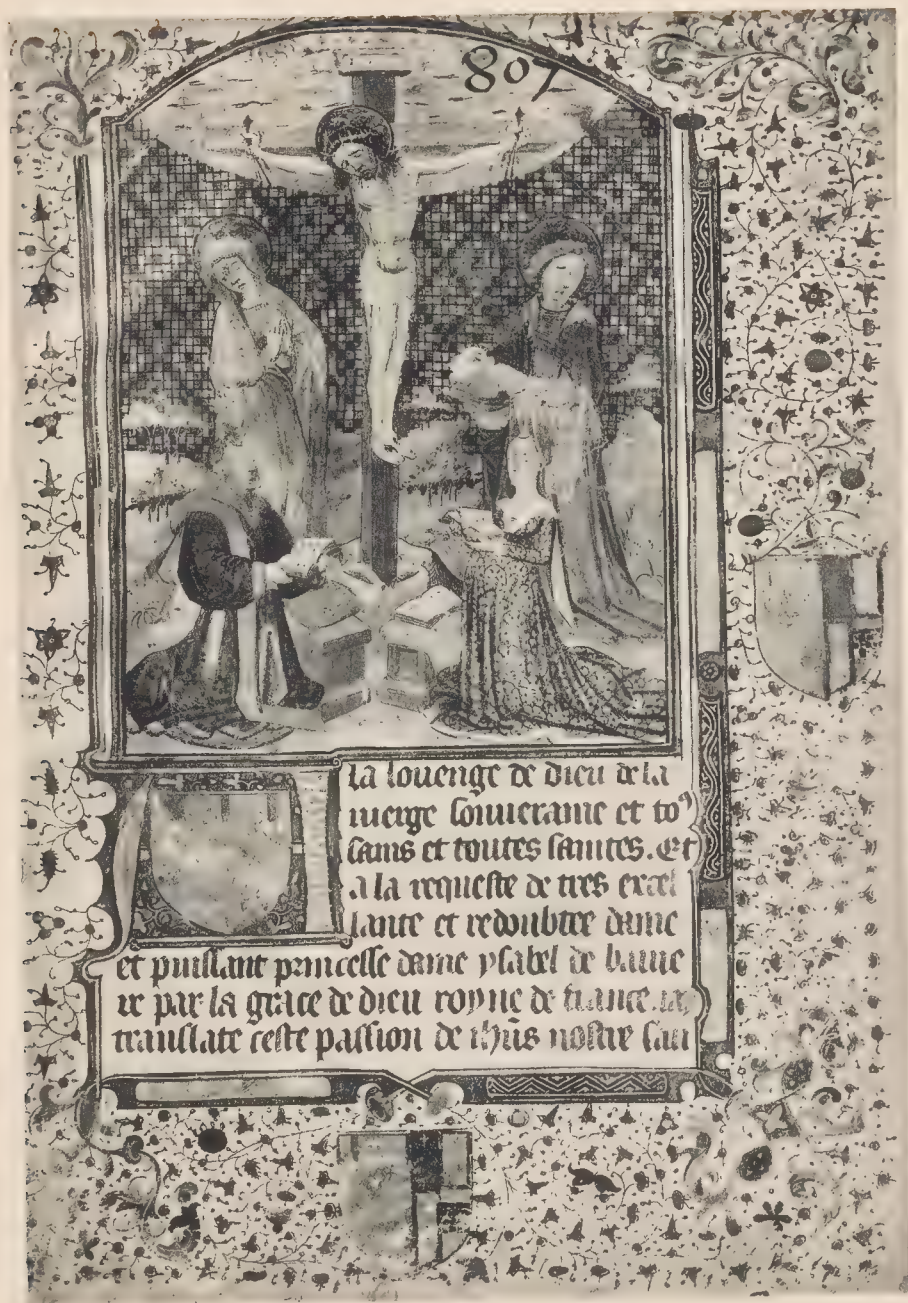 807
la louenge de dieu de la
vierge souueraine et to⁹
sains et toutes saintes. Et
a la requeste de tres excel
lante et redoubtee dame
et puissant princesse dame ysabel de bauie
re par la grace de dieu royne de france. iay
translate ceste passion de ih̄us nostre sau